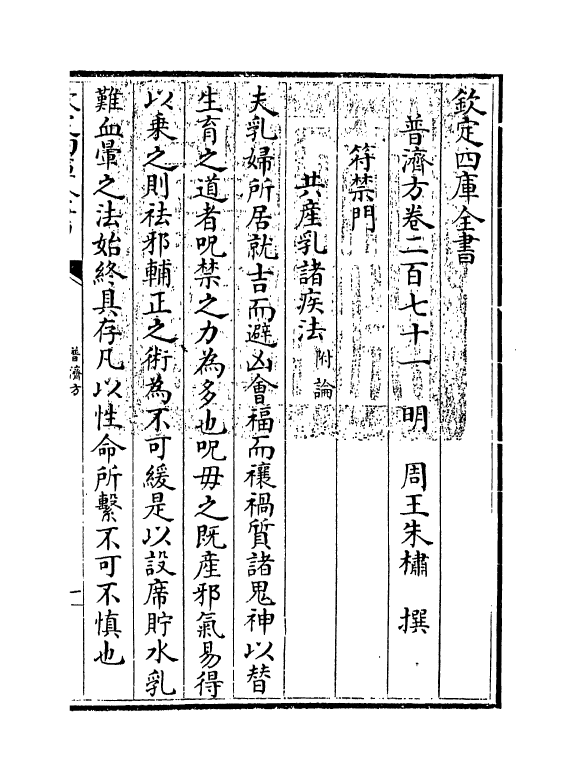 欽定四庫全書
普濟方卷二百七十一 明 周王朱橚 撰
符禁門
共産乳諸疾法 附論
夫乳婦所居就吉而避凶會福而禳禍質諸鬼神以替
生育之道者呪禁之力為多也呪毋之既産邪氣易得
以乗之則祛邪輔正之術為不可緩是以設席貯水乳
難血暈之法始終具存凡以性命所繫不可不慎也
普濟方
一